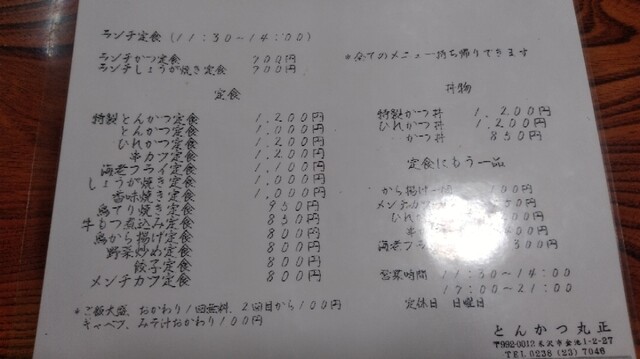 ランチ定食 (11:30~14:00)
ランチかつ定食 700円
ランチしょうが焼き定食 700円
*全てのメニュー持ち帰りできます
定食
特製とんかつ定食 1,200円
とんかつ定食 1,000円
ひれかつ定食 1,200円
串カツ定食 1,000円
海老フライ定食 1,100円
しょうが焼き定食 1,000円
香味焼き定食 1,000円
鳥てり焼き定食 950円
牛もつ煮込み定食 850円
鳥から揚げ定食 800円
野菜炒め定食 800円
餃子定食 800円
メンチカツ定食 800円
*ご飯大盛、おかわり1回無料、2回目から100円
キャベツ、みそ汁おかわり100円
丼物
特製かつ丼 1,200円
ひれかつ丼 1,200円
かつ丼 850円
定食にもう一品
から揚げ一個 00円
メンチカ 50円
ひれ 円
串 円
海老フラ 300円
営業時間 11:30~14:00
17:00~21:00
定休日 日曜日
とんかつ丸正
〒992-0012 米沢市金池1-2-27
TEL.0238 (23) 7046